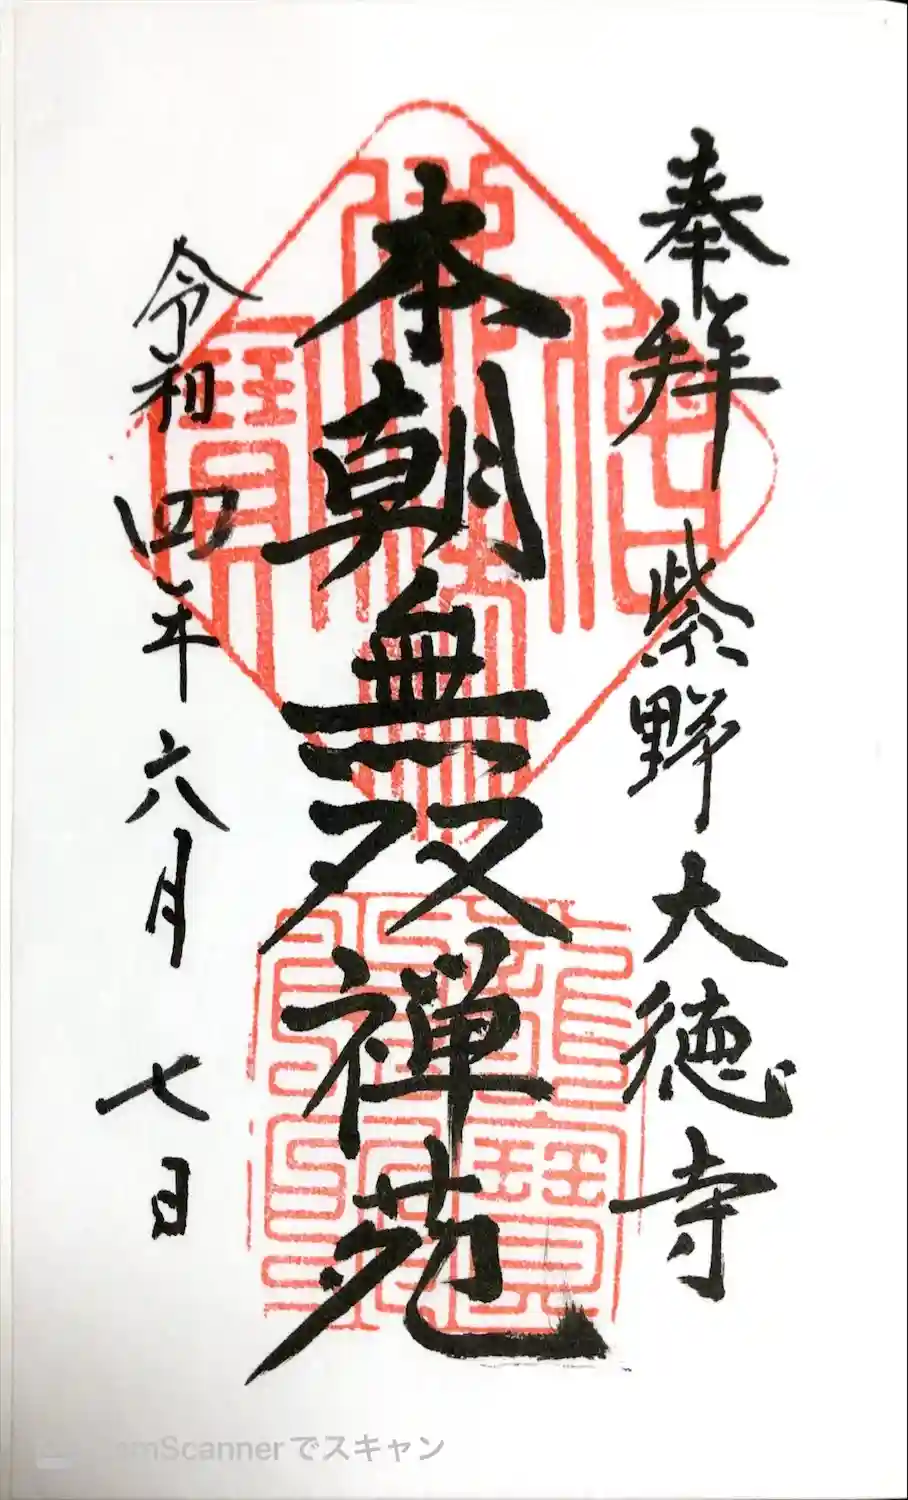 奉拝 紫野 大徳寺
本朝無双禅苑
令和四年六月七日
amScannerでスキャン